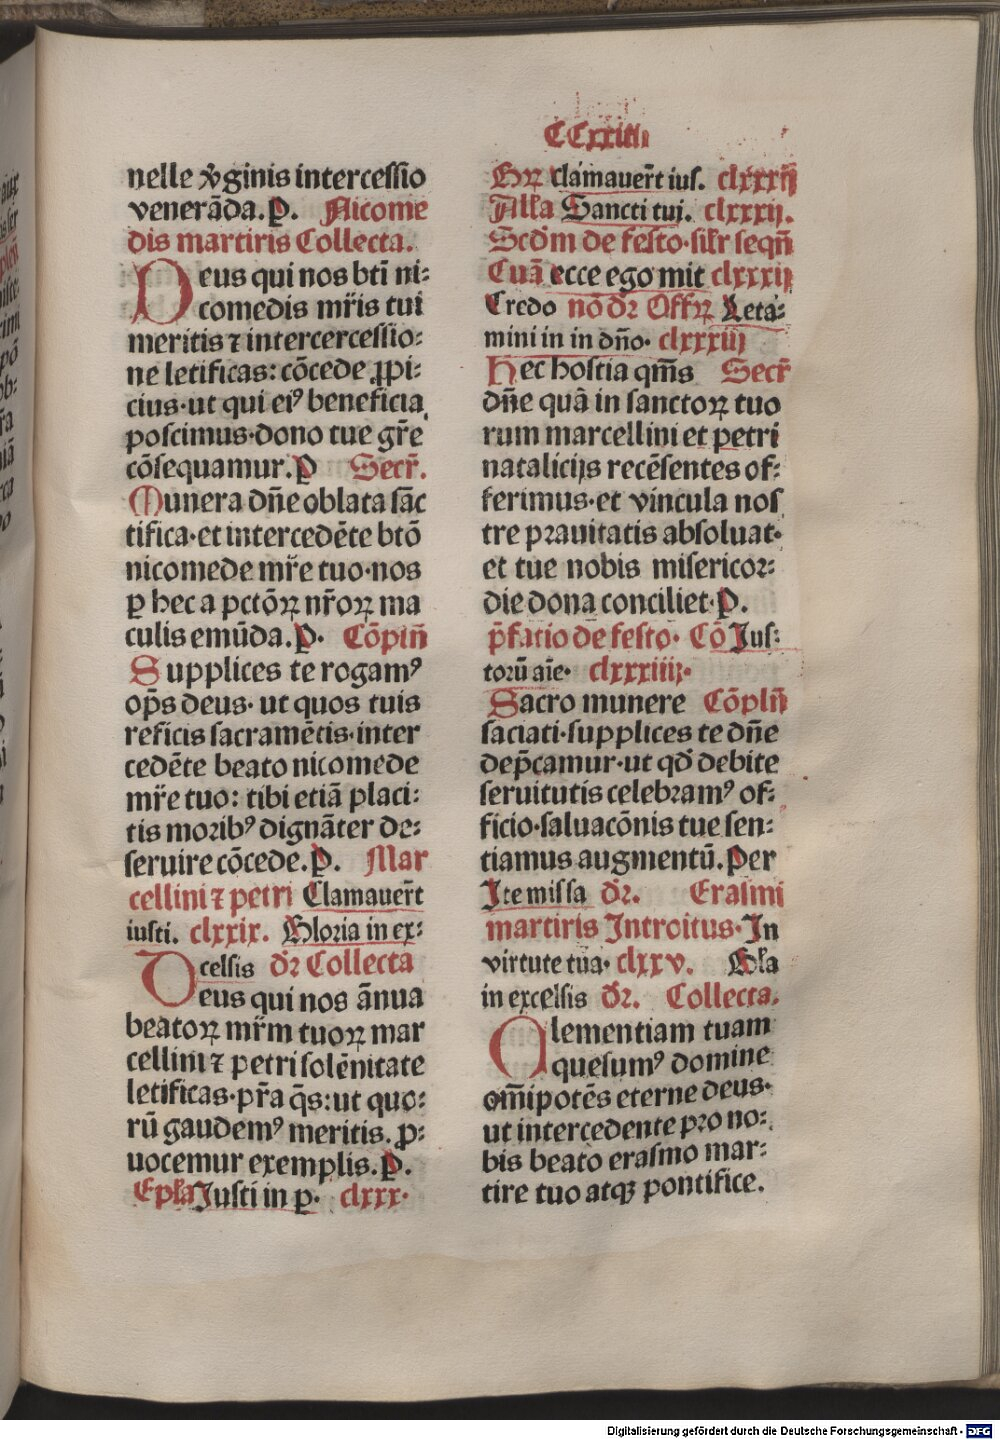 CCxxiiii
nelle v̔ginis intercessio
venerāda. P. Nicome
dis martiris Collecta.
Deus qui nos btī ni⸗
comedis mr̄is tui
meritis ⁊ intercercessio⸗
ne letificas: cōcede ꝓpi⸗
cius·ut qui eiꝰ beneficia
poscimus·dono tue gr̄e
cōsequamur. P Secr̄.
Munera dn̄e oblata sāc
tifica·et intercedēte btō
nicomede mr̄e tuo·nos
ꝑ hec a pctōꝝ nr̄oꝝ ma
culis emūda. P. Cōpln̄
Supplices te rogamꝰ
op̄s deus· ut quos tuis
reficis sacramētis·inter
cedēte beato nicomede
mr̄e tuo: tibi etiā placi⸗
tis moribꝰ dignāter de⸗
seruire cōcede. P. Mar
cellini ⁊ petri Clamauer̄t
iusti. clxxix. Gloria in ex⸗
celsis dr̄ Collecta
Deus qui nos ānua
beatoꝝ mr̄m tuoꝝ mar
cellini ⁊ petri solēnitate
letificas·pr̄a q̄s: ut quo⸗
rū gaudemꝰ meritis. ꝓ⸗
uocemur exemplis. P.
Epl̄a Justi in ꝑ. clxxx·
Gr̄ clamauer̄t ius. clxxxij
All̄a Sancti tui. clxxxij.
Scd̄m de festo·sil̄r seqn̄
Cuā ecce ego mit clxxxij
Credo nō dr̄ Offꝝ Letā⸗
mini in in dn̄o· clxxxiij
Hec hostia qm̄s Secr̄
dn̄e quā in sanctoꝝ tuo
rum marcellini et petri
natalicijs recēsentes of⸗
ferimus·et vincula nos
tre prauitatis absoluat·
et tue nobis misericor⸗
die dona conciliet· P.
p̄fatio de festo· Cō Jus⸗
torū aīe· clxxxiiij·
Sacro munere Cōpln̄
saciati·supplices te dn̄e
dep̄camur·ut qd̄ debite
seruitutis celebramꝰ of⸗
ficio·saluacōnis tue sen⸗
tiamus augmentū. Per
Ite missa dr̄. Erasmi
martiris Introitus· In
virtute tua· clxxv. Gl̄a
in excelsis dr̄. Collecta.
Clementiam tuam
quesumꝰ domine
om̄ipotēs eterne deus·
ut intercedente pro no⸗
bis beato erasmo mar⸗
tire tuo atqꝫ pontifice.
Digitalisierung gefördert durch die Deutsche Forschungsgemeinschaft - DFG